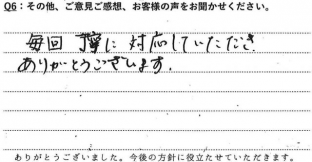 Q6：その他、ご意見ご感想、お客様の声をお聞かせください。
毎回丁寧に対応していただき
ありがとうございます.
ありがとうございました。今後の方針に役立たせていただきます。